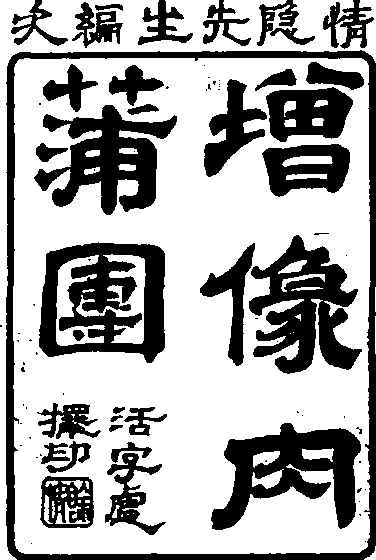 情隐先生編次
增像肉
蒲團
活字處
擺印